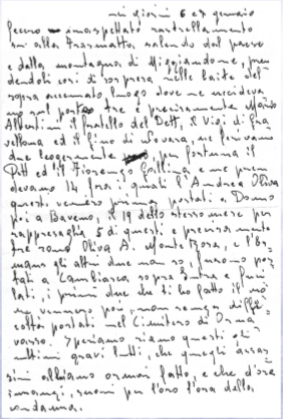 nei giorni 6 e 7 gennaio
fecero inaspettato rastrellamento
su alla Frasmatta salendo dal paese
e dalla montagna di Miggiandone, pren
dendoli così di sorpresa nelle baite del
sopra accennato luogo dove ne uccideva
no sul posto tre e precisamente Mario
Albertini il fratello del Dott, il Vigi di Gra
vellona ed il Pino di Novara, ne ferivano
due leggermente per fortuna il
Pitt ed il Fiorenzo Gallina e ne pren
devano 14 fra i quali l'Andrea Oliva
questi vennero prima portati a Domo
poi a Baveno, il 19 dello stesso mese per
rappresaglia 5 di questi e precisamente
tre sono Oliva A. Monte Rosa, e l'
gli altri due non so, furono por
tati a Cambiasca sopra Intra e fuci
lati, i primi due che ti ho fatto il no
me vennero poi, non senza diffi
coltà portati nel Cimitero di Orna
vasso. Speriamo siano questi gli
ultimi gravi lutti, che quegli assas
sini abbiano ormai fatto, e che d'ora
innanzi, suoni per loro l'ora della
condanna.